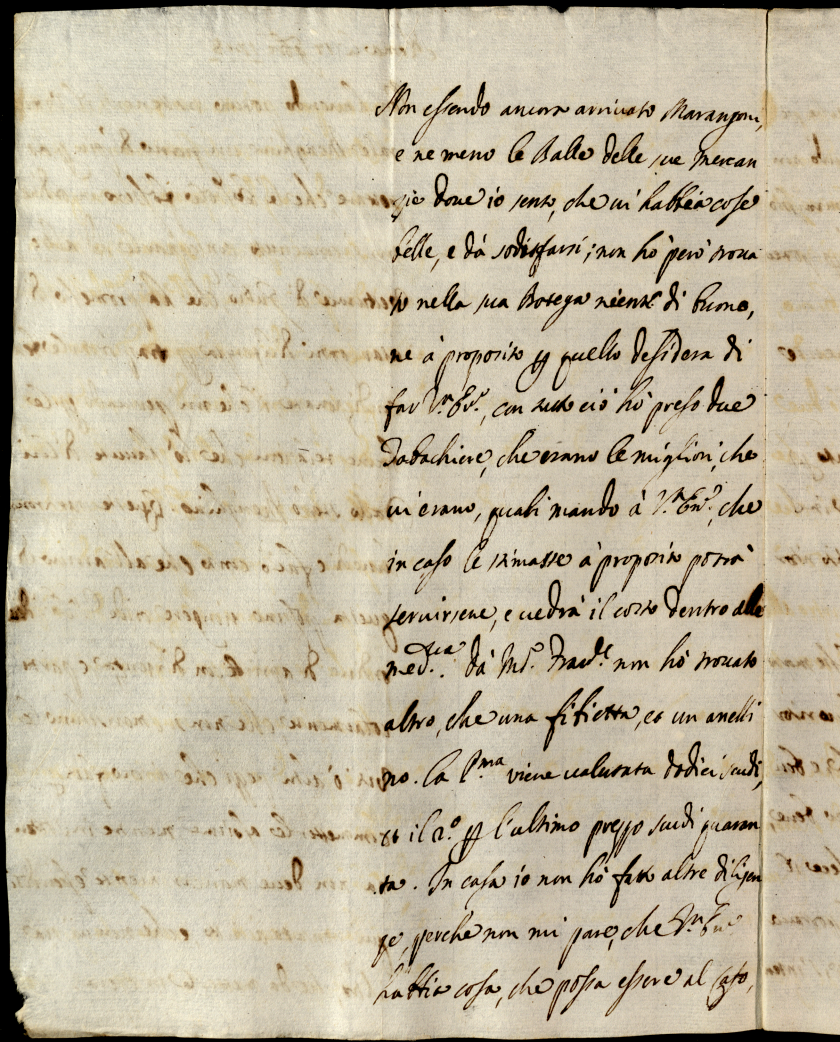 Non essendo ancora arrivato Marangoni,
e ne meno le Balle delle sue mercan
zie doue io sento, che ui habbia cose
belle, e dà sodisfarsi; non hò però troua
to nella sua Botega niente di buono,
ne à proposito ꝑ quello desidera di
far V.ra Ecc.a, con tutto ciò hò preso due
Tabachiere, che erano le migliori, che
ui erano, quali mando à V.ra Ecc.a, che
in caso le stimasse à proposito potrà
seruirsene, e uedrà il costo dentro alle
med.me. dà M.r Frau.
non hò trouato
altro, che una fibietta, et un anelli
no. la p.ma viene ualutata dodici scudi,
et il 2.o ꝑ l'ultimo prezzo scudi quaran
ta. In casa io non hò fatto altre diligen
ze, perche non mi pare, che V.ra Ecc.a
habbia cosa, che possa essere al caso,